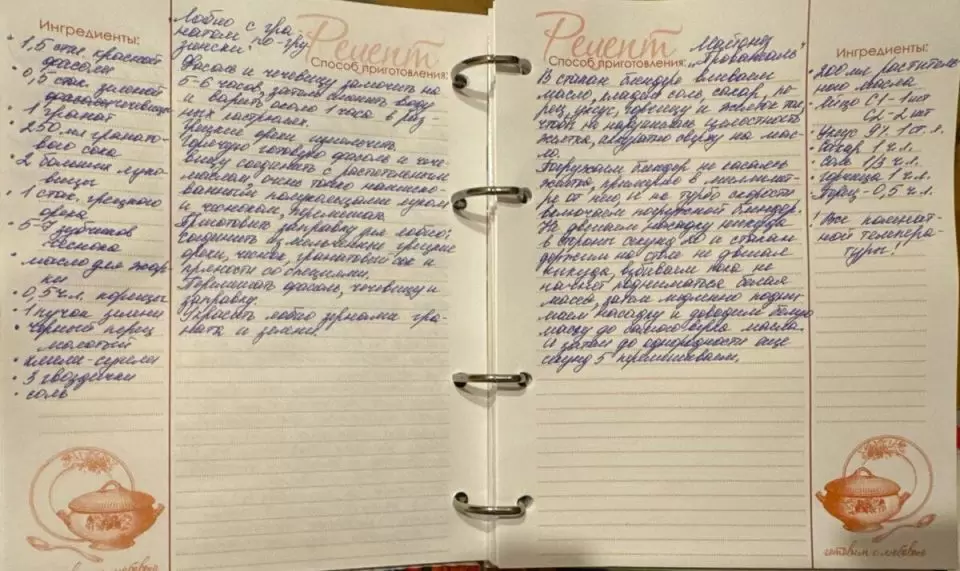 Ингредиенты:
• 1,5 стк. красной
фасоли
• 0,5 стак. зеленой
чечевицы
• 1 гранат
• 250 мл гранато-
вого сока
• 2 больших луко-
вицы
• 1 стак. грецкого
ореха
• 5-7 зубчиков
чеснока
• масло для жар-
ки
• 0,5 ч.л. корицы
• 1 пучок зелени
• черный перец
молотый
• хмели-сунели
• 3 гвоздички
• соль
Лобио с гра-
натом по-гру-
зински:
Рецепт
Способ приготовления:
Фасоль и чечевицу замочить на
5-6 часов, затем сменить воду
и варить около 1 часа в раз-
ных кастрюлях.
Грецкие орехи измельчить.
Горячую готовую фасоль и чече-
вицу соединить с растительным
маслом очень тонко нашинко-
ванным полукольцами луком
и чесноком, перемешать.
Приготовить заправку для лобио:
соединить измельченные грецкие
орехи, чеснок, гранатовый сок и
пряности со специями.
Перемешать фасоль, чечевицу и
заправку.
Украсить лобио зернами гра-
ната и зелени.
Рецепт
Способ приготовления:
Майонез
"Провансаль"
В стакан блендера вливаем
масло, кладем соль, сахар, пе-
рец, уксус, горчицу и желток так,
чтобы не нарушилась целостность
желтка, аккуратно сверху на мас-
ло.
Погружаем блендер не касаясь
желтка, примерно в миллимет-
ре от него, и на турбо скорости
включаем погружной блендер.
Не двигаем насадку никуда
в стороны секунд 10 и стакан
держим на столе не двигая
никуда, взбиваем пока не
начнет подниматься белая
масса, затем медленно подни-
маем насадку и доводим белую
массу до самого верха масла.
И затем до однородности еще
секунд 5 перемешиваем.
Ингредиенты:
• 200 мл раститель-
ного масла
• яйцо С1 - 1 шт
С2 - 2 шт
• Уксус 9% 1 ст. л.
• Сахар 1 ч.л.
• соль 1/3 ч.л.
• горчица 1 ч.л.
• Перец - 0,5 ч.л.
! Все комнат-
ной темпера-
туры!
готовим с любовью